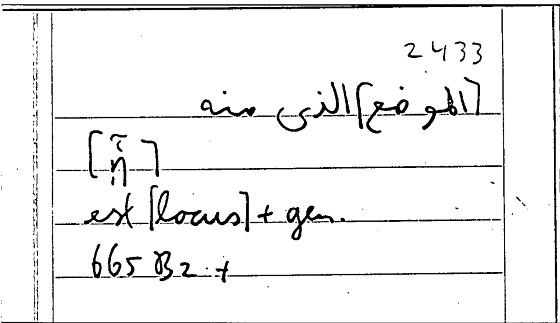 2433
[الموضع] الذى منه
[ἧ]
est [locus] + gen.
665 B2 +